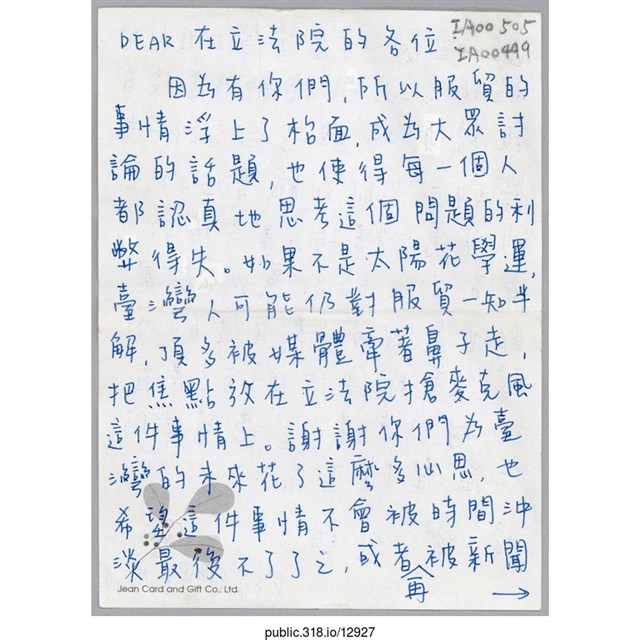 IA00505
IA00499
DEAR 在立法院的各位
因為有你們,所以服貿的
事情浮上了枱面,成為大眾討
論的話題,也使得每一個人
都認真地思考這個問題的利
弊得失。如果不是太陽花學運,
臺灣人可能仍對服貿一知半
解,頂多被媒體牽著鼻子走,
把焦點放在立法院搶麥克風
這件事情上。謝謝你們為臺
灣的未來花了這麼多心思,也
希望這件事情不會被時間沖
淡最後不了了之,或者被新聞
再
→
Jean Card and Gift Co., Ltd.
public.318.io/12927